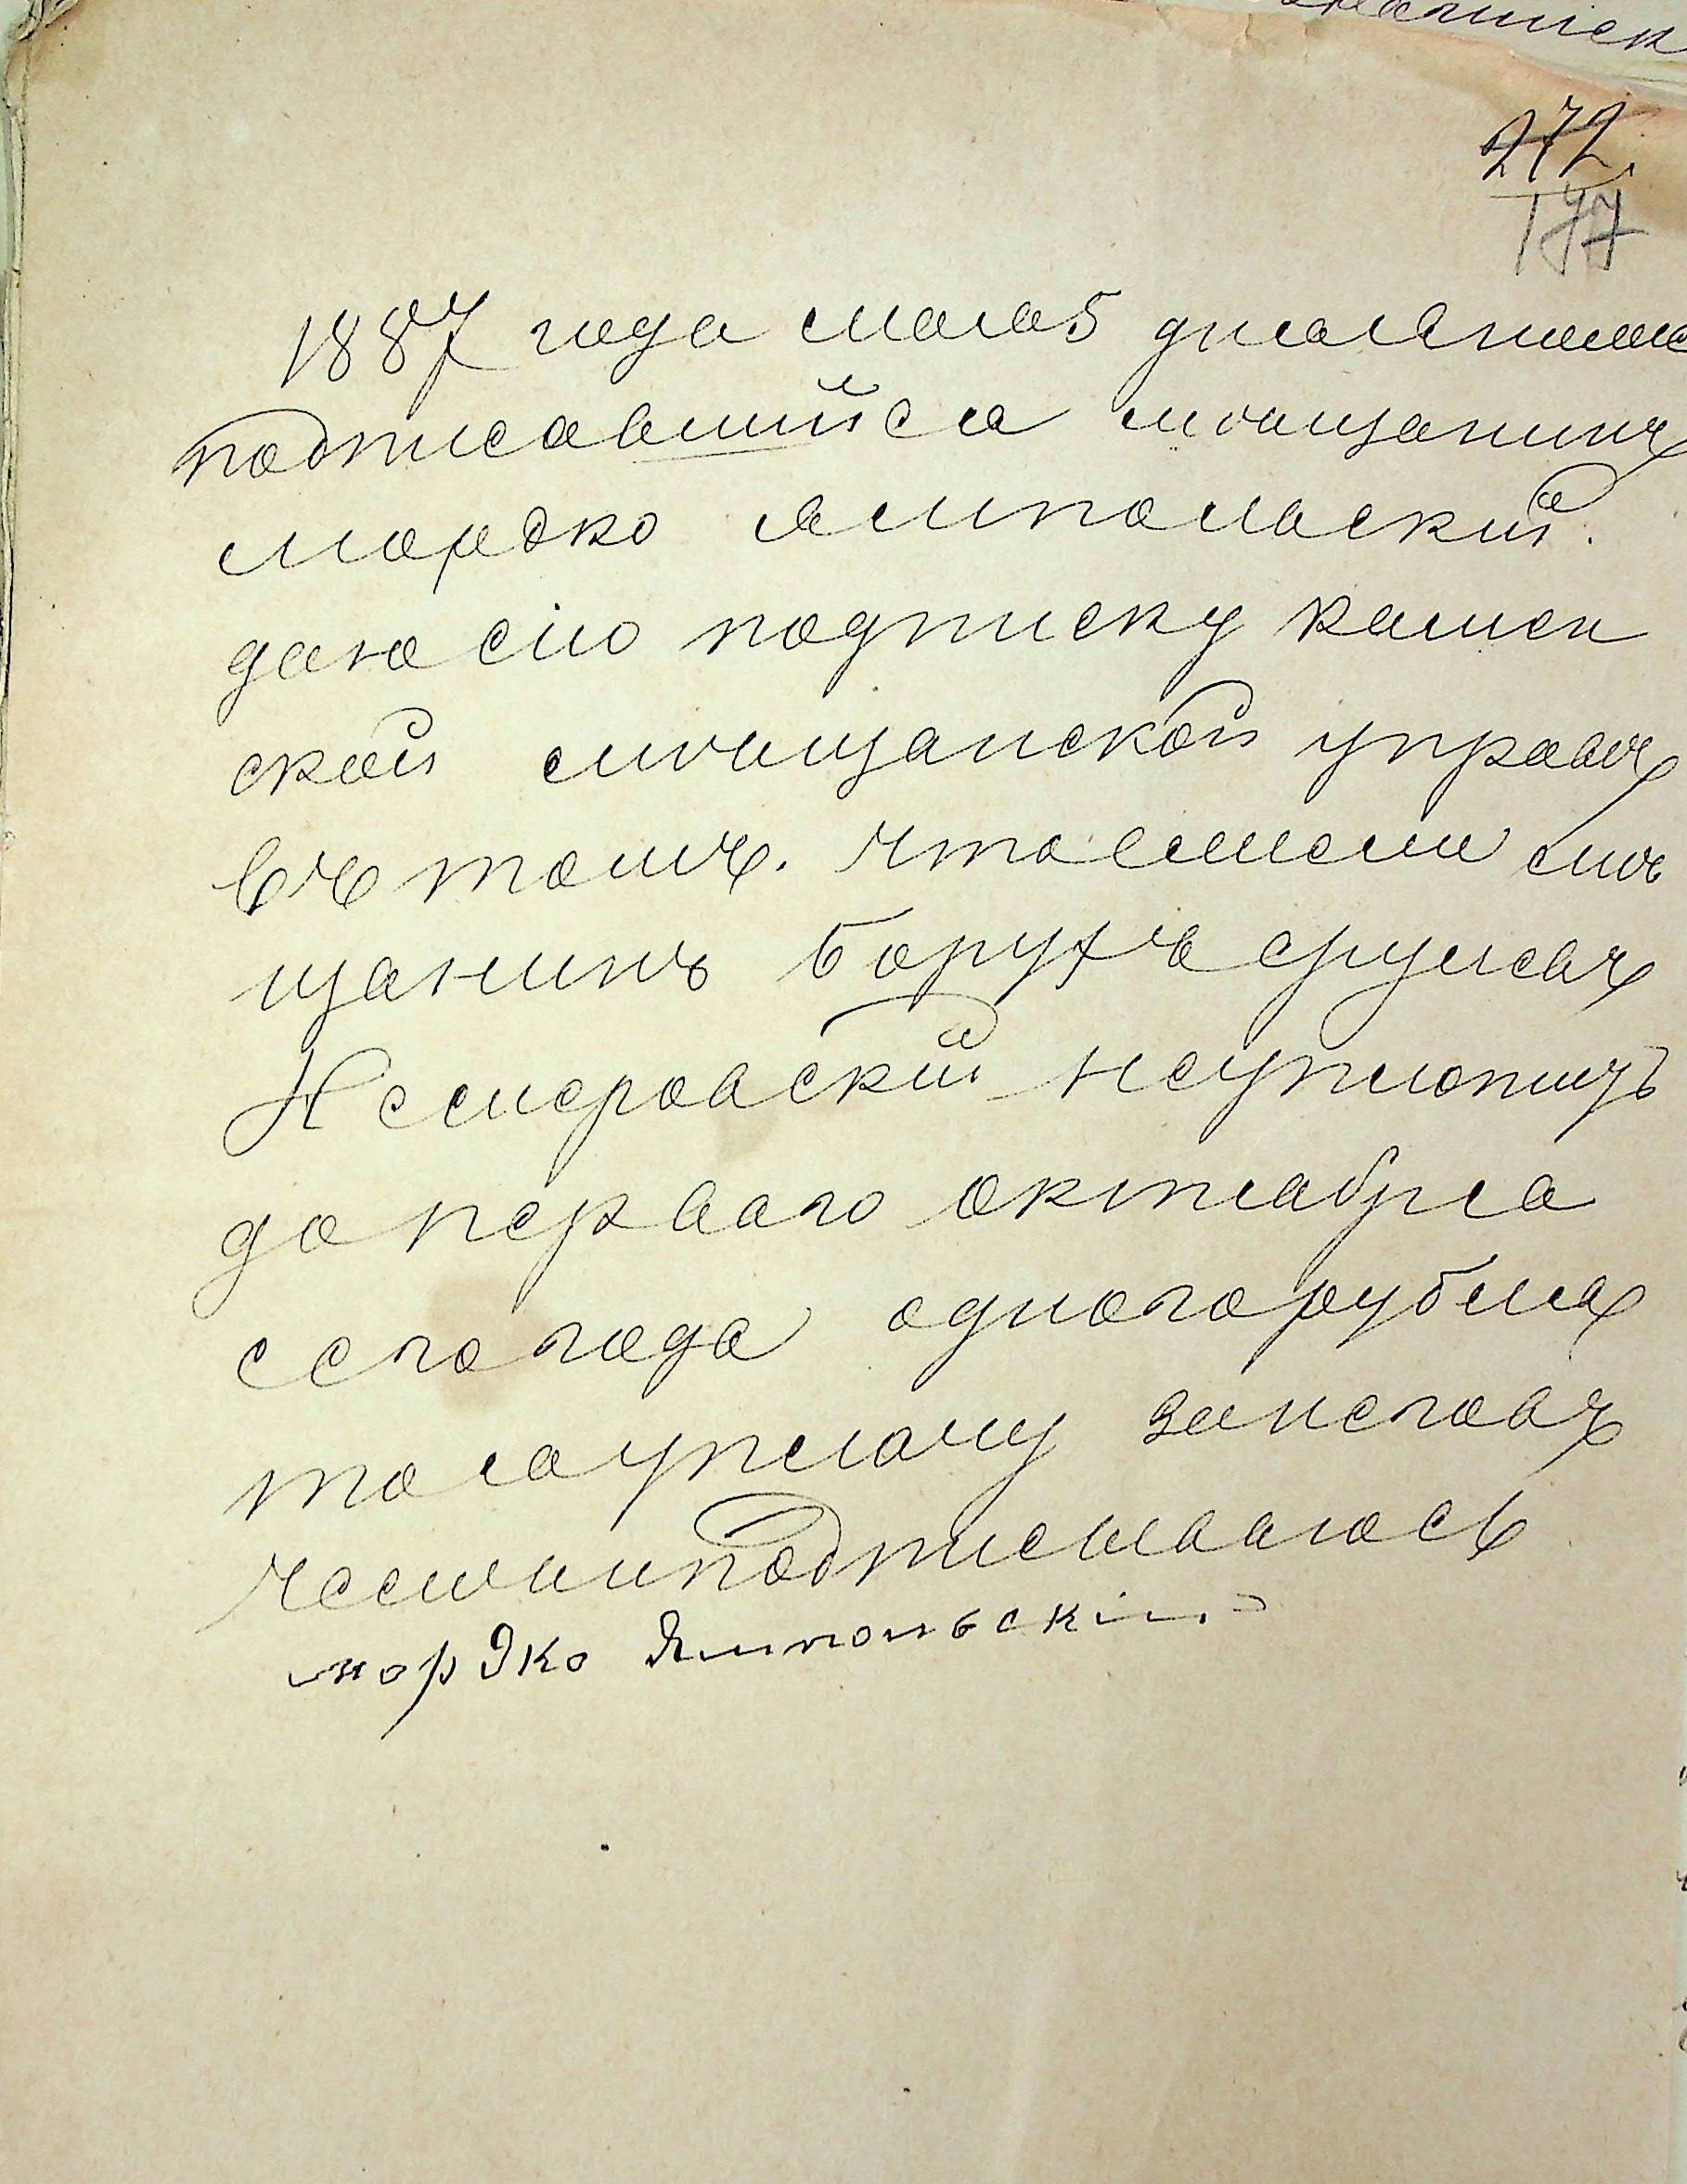 272.
177
1887 года мая 5 дня я ниже
подписавшийся мѣщанинъ
мордко ямпольскій.
даю сію подписку камен
ской мѣщанской управѣ
въ томъ. что ежели мѣ
щанинъ Борухъ срулевъ
Немеровскій неуплотитъ
до перваго октября
сего года одного рубля
то я уплочу за него въ
чемъ и подписываюсь
мордко Ямпольскій